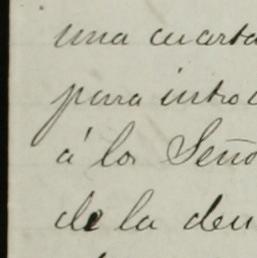 una cuarta
para introd
á los Seño
de la deu